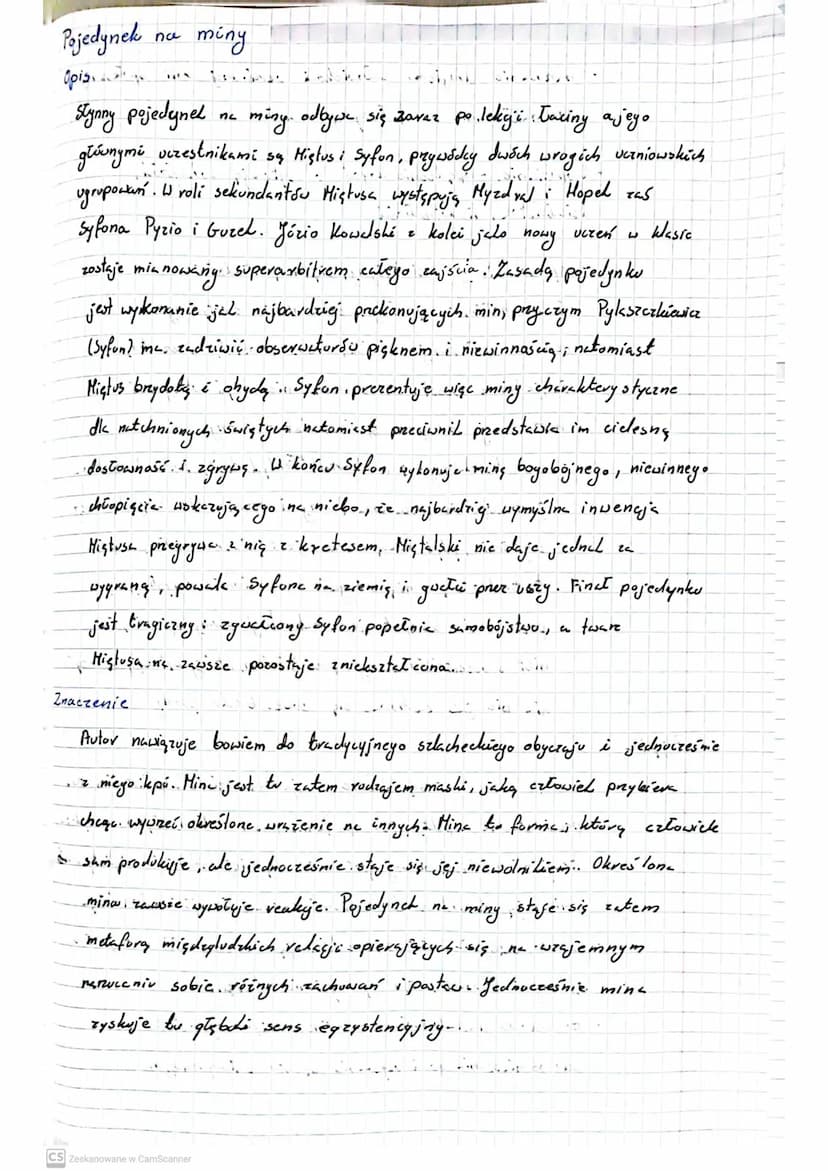 Pojedynek na miny
Opis
Słynny pojedynek na miny odbywa się zaraz po lekcji łaciny a jego
głównymi uczestnikami są Miętus i Syfon, przywódcy dwóch wrogich uczniowskich
ugrupowań. W roli sekundantów Miętusa występują Myzdral i Hopek zaś
Syfona Pyzio i Guzek. Józio Kowalski z kolei jako nowy uczeń w klasie
zostaje mianowany superarbitrem całego zajścia. Zasadą pojedynku
jest wykonanie jak najbardziej przekonujących min, przy czym Pylaszczkiewicz
(Syfon) ma zadziwić obserwatorów pięknem i niewinnością, natomiast
Miętus brzydotą i ohydą. Syfon prezentuje więc miny charakterystyczne
dla natchnionych świętych natomiast przeciwnik przedstawia im cielesną
dosłowność i zgrywę. W końcu Syfon wykonuje minę bogobojnego, niewinnego
chłopięcia wskazującego na niebo, że najbardziej wymyślna inwencja
Miętusa przegrywa z nią z kretesem, Miętalski nie daje jednak za
wygraną, powala Syfona na ziemię i gwałci przez uszy. Finał pojedynku
jest tragiczny: zgwałcony Syfon popełnia samobójstwo, a twarz
Miętusa na zawsze pozostaje zniekształcona.
Znaczenie
Autor nawiązuje bowiem do tradycyjnego szlacheckiego obyczaju i jednocześnie
z niego kpi. Mina jest tu zatem rodzajem maski, jaką człowiek przybiera
chcąc wywrzeć określone wrażenie na innych. Mina to forma, którą człowiek
sam produkuje, ale jednocześnie staje się jej niewolnikiem. Określona
mina zawsze wywołuje reakcje. Pojedynek na miny staje się zatem
metaforą międzyludzkich relacji opierających się na wzajemnym
narzucaniu sobie różnych zachowań i postaw. Jednocześnie mina
zyskuje tu głęboki sens egzystencyjny.
CS Zeskanowane w CamScanner